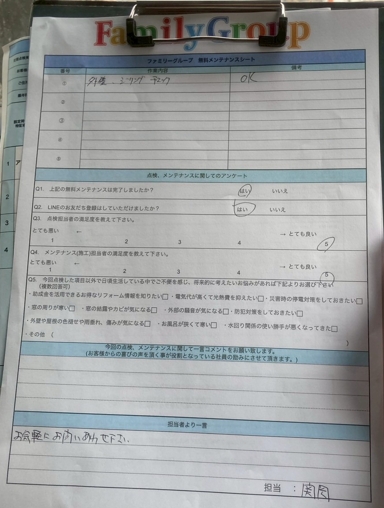 Family Group
ファミリーグループ 無料メンテナンスシート
番号 作業内容 備考
① 外壁、シリング チェック OK
②
③
④
⑤
点検、メンテナンスに関してのアンケート
Q1. 上記の無料メンテナンスは完了しましたか? はい いいえ
Q2. LINEのお友だち登録はしていただけましたか? はい いいえ
Q3. 点検担当者の満足度を教えて下さい。
とても悪い ← → とても良い
1 2 3 4 5
Q4. メンテナンス(施工)担当者の満足度を教えて下さい。
とても悪い ← → とても良い
1 2 3 4 5
Q5. 今回点検した項目以外で日頃生活している中でご不便を感じ、将来的に考えたいお悩みがあれば下記よりお選び下さい
(複数回答可)
・助成金を活用できるお得なリフォーム情報を知りたい□ ・電気代が高くて光熱費を抑えたい□ ・災害時の停電対策をしておきたい□
・窓の周りが寒い□ ・窓の結露やカビが気になる□ ・外部の騒音が気になる□ ・防犯対策をしておきたい□
・外壁や屋根の色褪せや雨垂れ、痛みが気になる□ ・お風呂が狭くて寒い□ ・水回り関係の使い勝手が悪くなってきた□
・その他 ( )
今回の点検、メンテナンスに関して一言コメントをお願い致します。
(お客様からの喜びの声を頂く事が役割となっている社員の励みにさせて頂きます。)
担当者より一言
お気軽にお問い合わせ下さい。
担当 :